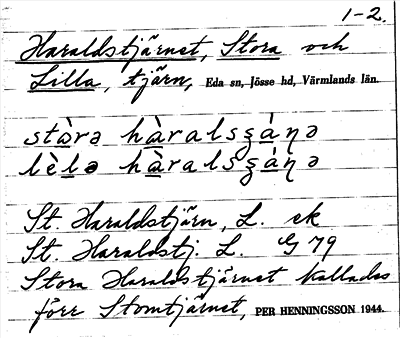 1-2.
Haraldstjärnet, Stora och
Lilla, tjärn, Eda sn, Jösse hd, Värmlands län.
stɑ̀rə hɑ̀ralsʂɑ́ɳə
lèlə hɑ̀ralsʂɑ́ɳə
St. Haraldstjärn, L. ek
St. Haraldstj. L. G 79
Stora Haraldstjärnet kallades
förr Stomtjärnet, PER HENNINGSSON 1944.